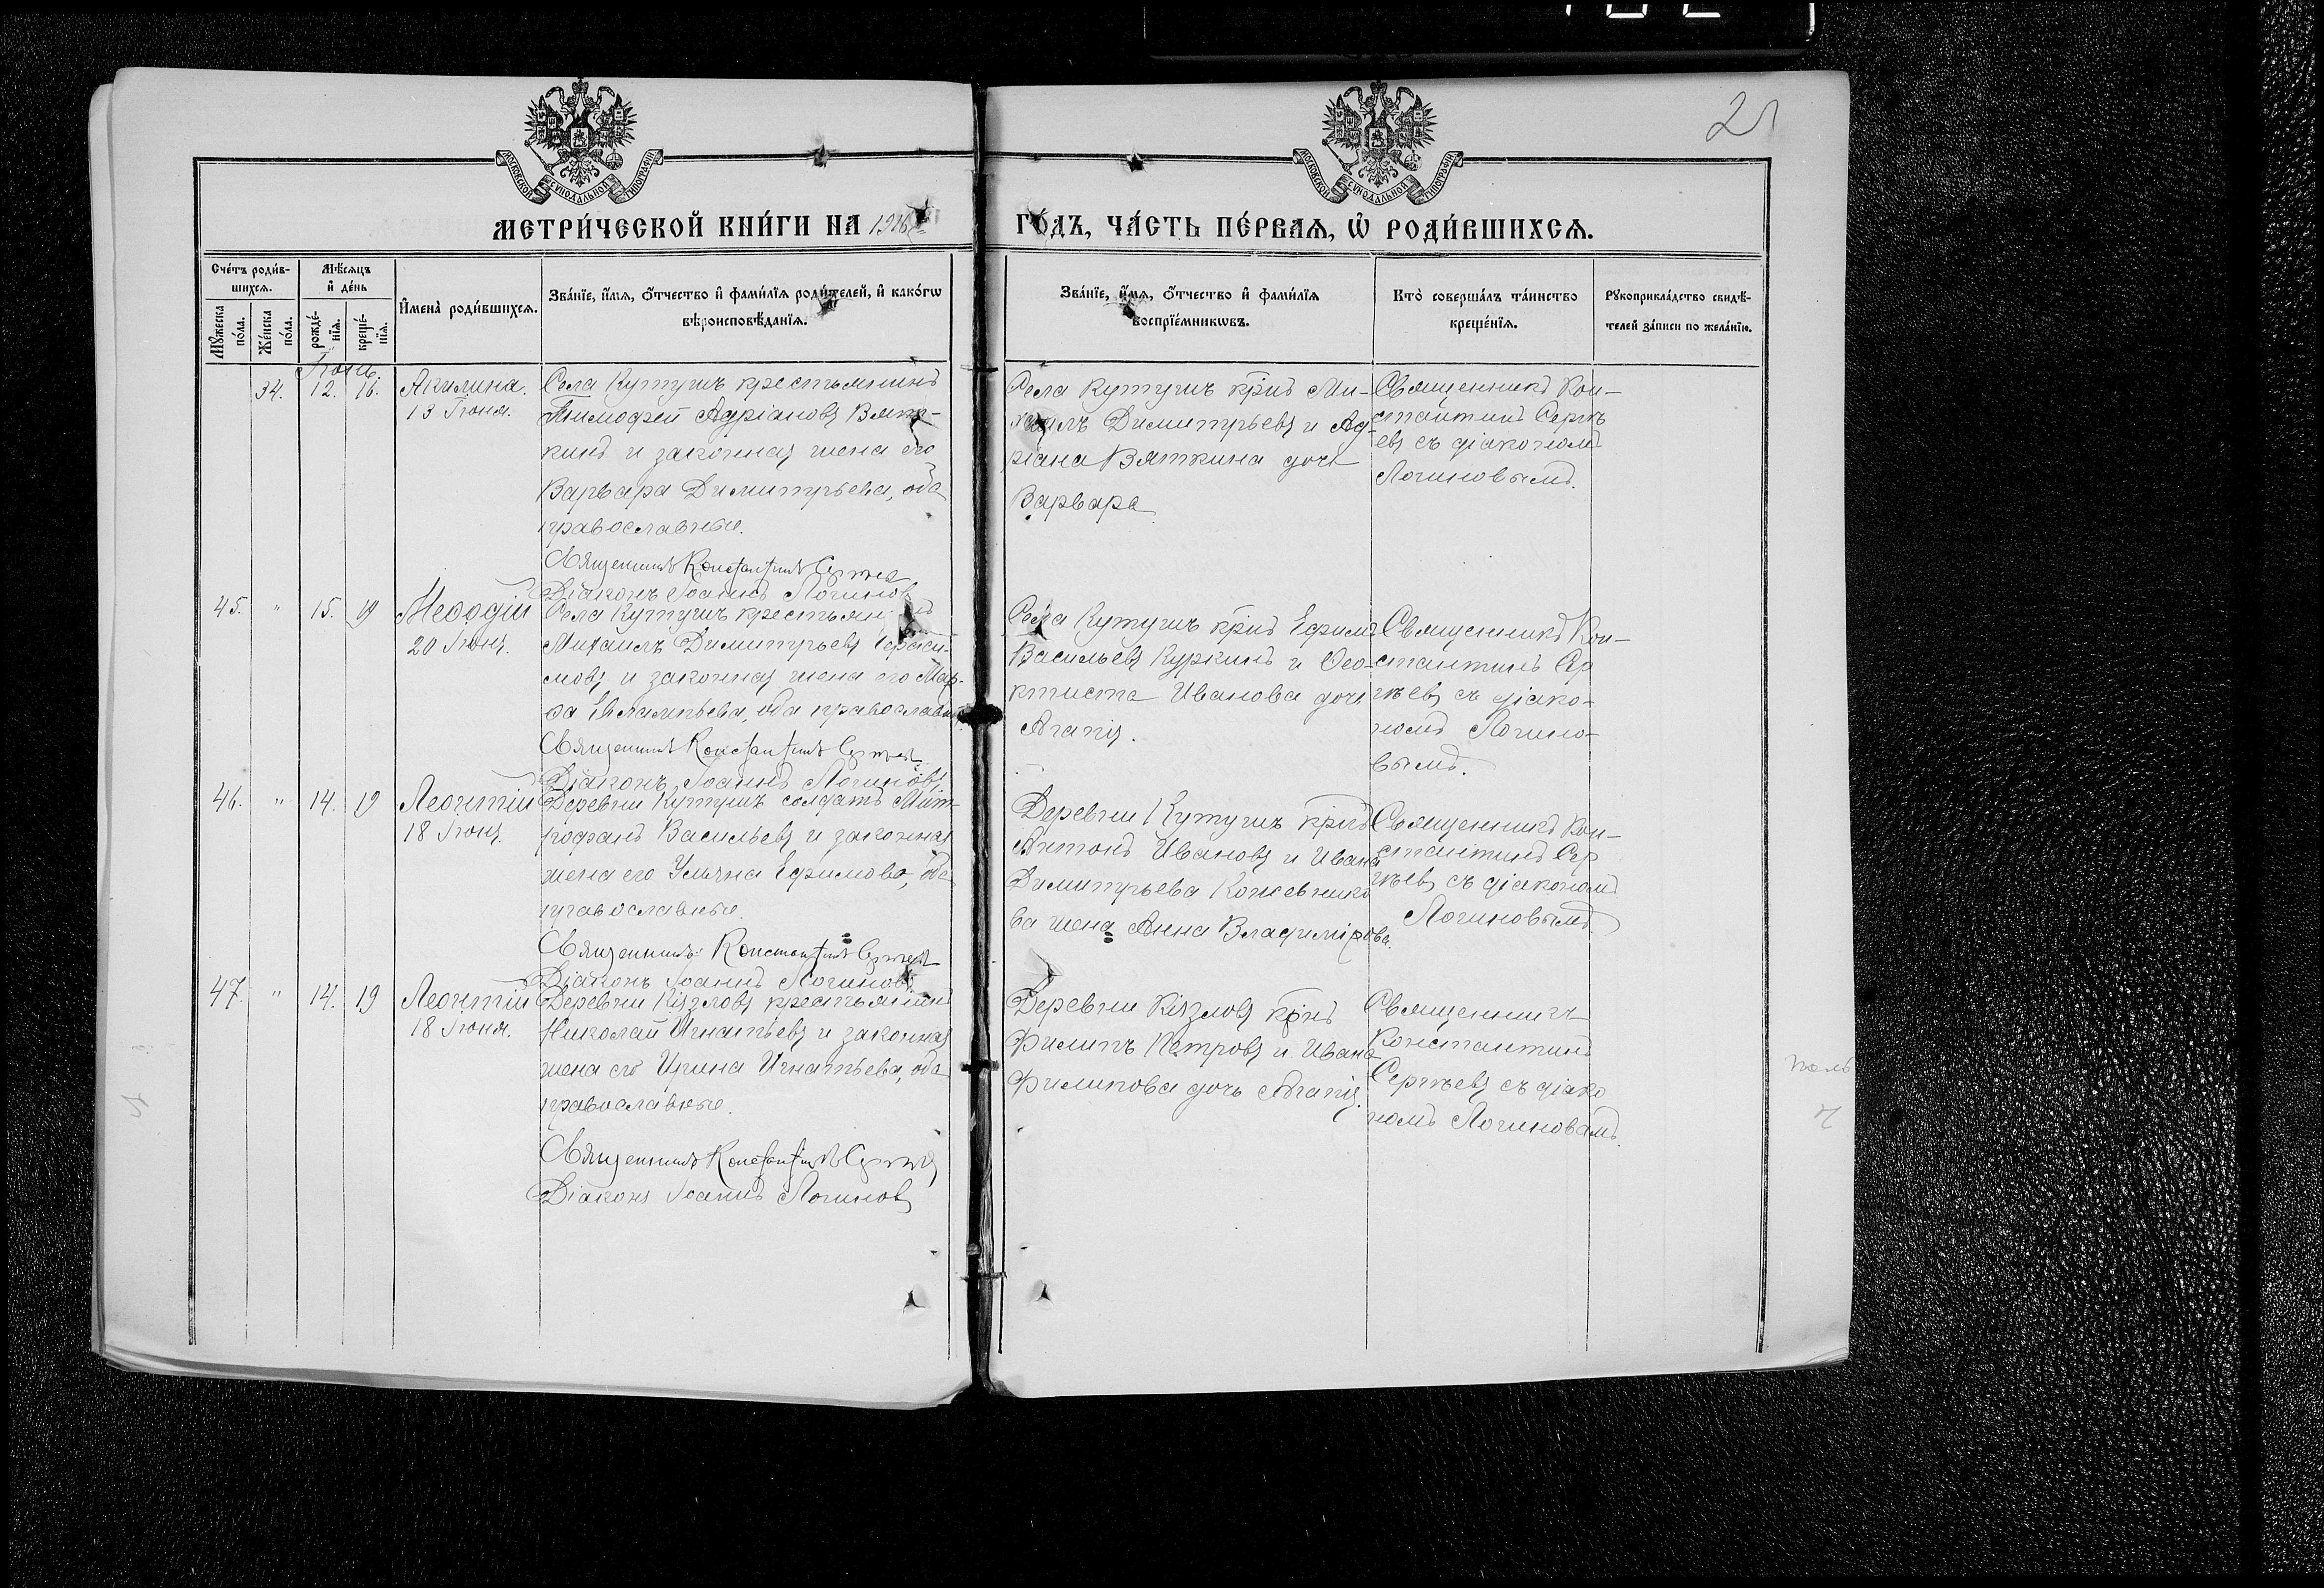 21
МОСКОВСКОЙ СѴНОДАЛЬНОЙ ТИПОГРАФІИ
МОСКОВСКОЙ СѴНОДАЛЬНОЙ ТИПОГРАФІИ
МЕТРИ́ЧЕСКОЙ КНИ́ГИ НА 1916
ГО́ДЪ, ЧА́СТЬ ПЕ́РВАѦ, Ѡ҆ РОДИ́ВШИХСѦ.
Сче́тъ роди́в-
шихсѧ.
Мꙋ́жеска по́ла.
Же́нска по́ла.
Мѣ́сѧцъ
и҆ де́нь
рожде́-
нїѧ.
креще́-
нїѧ.
И҆мена̀ роди́вшихсѧ.
Зва́нїе, и҆́мѧ, ѻ҆́тчество и҆ фами́лїѧ роди́телей, и҆ како́гѡ
вѣроисповѣ́данїѧ.
Зва́нїе, и҆́мѧ, ѻ҆́тчество и҆ фами́лїѧ
воспрїе́мникѡвъ.
Кто̀ соверша́лъ та́инство
креще́нїѧ.
Рꙋкоприкла́дство свидѣ́-
телей за́писи по жела́нїю.
Іюнь.
34. 12. 16. Акилина.
13 Іюня.
Села Кутушъ крестьянинъ
Тимофей Адріановъ Вят-
кинъ и законная жена его
Варвара Димитріева, оба
православные.
Священникъ Константинъ Сергѣевъ
Діаконъ Іоаннъ Логиновъ
Села Кутушъ кр̅нъ Ми-
хаилъ Димитріевъ и Ад-
ріана Вяткина дочь
Варвара
Священникъ Кон-
стантинъ Сергѣ
евъ съ діакономъ
Логиновымъ.
45. " 15. 19 Меѳодій
20 Іюня.
Села Кутушъ крестьянинъ
Михаилъ Димитріевъ Гераси-
мовъ и законная жена его Мар-
ѳа Евлампіева, оба православн.
Священникъ Константинъ Сергѣевъ
Діаконъ Іоаннъ Логиновъ
Села Кутушъ кр̅нъ Ефимъ
Васильевъ Куркинъ и Ѳео-
ктиста Иванова дочь
Агапія.
Священникъ Кон-
стантинъ Сер
гѣевъ съ діако-
номъ Логино-
вымъ.
46. " 14. 19 Леонтій
18 Іюня.
Деревни Кутушъ солдатъ Мит-
рофанъ Васильевъ и законная
жена его Ульяна Ефимова, оба
православные.
Священникъ Константинъ Сергѣевъ
Діаконъ Іоаннъ Логиновъ
Деревни Кутушъ кр̅нъ
Антонъ Ивановъ и Ивана
Димитріева Кожевнико
ва жена Анна Владимірова.
Священникъ Кон-
стантинъ Сер
гѣевъ съ діакономъ
Логиновымъ
47. " 14. 19 Леонтій
18 Іюня.
Деревни Кізловъ крестьянинъ
Николай Игнатьевъ и законная
жена его Ирина Игнатьева, оба
православные.
Священникъ Константинъ Сергѣевъ
Діаконъ Іоаннъ Логиновъ
Деревни Кізловъ кр̅нъ
Филипъ Петровъ и Ивана
Филипова дочь Агапія.
Священникъ
Константинъ
Сергѣевъ съ діако
номъ Логиновымъ.